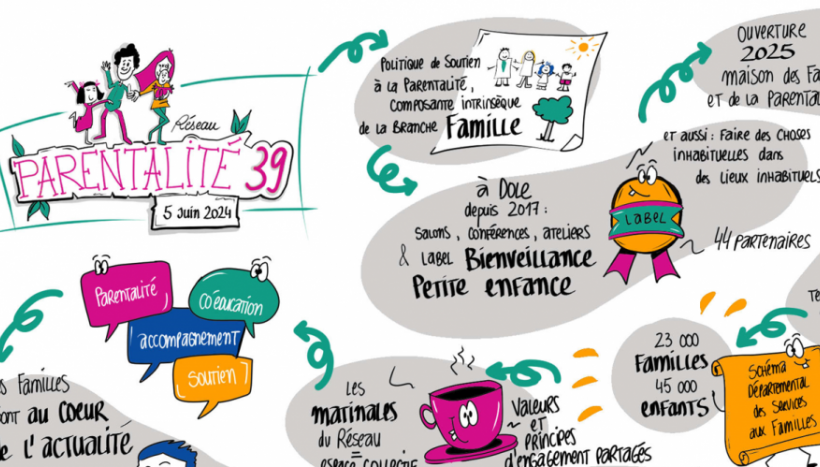 Réseau
PARENTALITÉ 39
5 Juin 2024
POLITIQUE DE SOUTIEN
à la PARENTALITÉ,
COMPOSANTE INTRINSÈQUE
de la BRANCHE FAMILLE
OUVERTURE
2025
maison des
ET de la
ET aussi : FAIRE des CHOSES
INHABITUELLES dans
des LIEUX INHABITUELS
à DOLE
depuis 2017 :
SALONS, CONFÉRENCES, ATELIERS
& LABEL BIENVEILLANCE
PETITE ENFANCE
LABEL
44 PARTENAIRES
PARENTALITÉ
COÉDUCATION
ACCOMPAGNEMENT
SOUTIEN
FAMILLES
au COEUR
l'ACTUALITÉ
LES
MATINALES
du RÉSEAU
=
ESPACE COLLECTIF
VALEURS
ET
PRINCIPES
d'ENGAGEMENT PARTAGÉS
23 000
FAMILLES
45 000
ENFANTS
SCHÉMA
DÉPARTEMENTAL
des SERVICES
aux FAMILLES